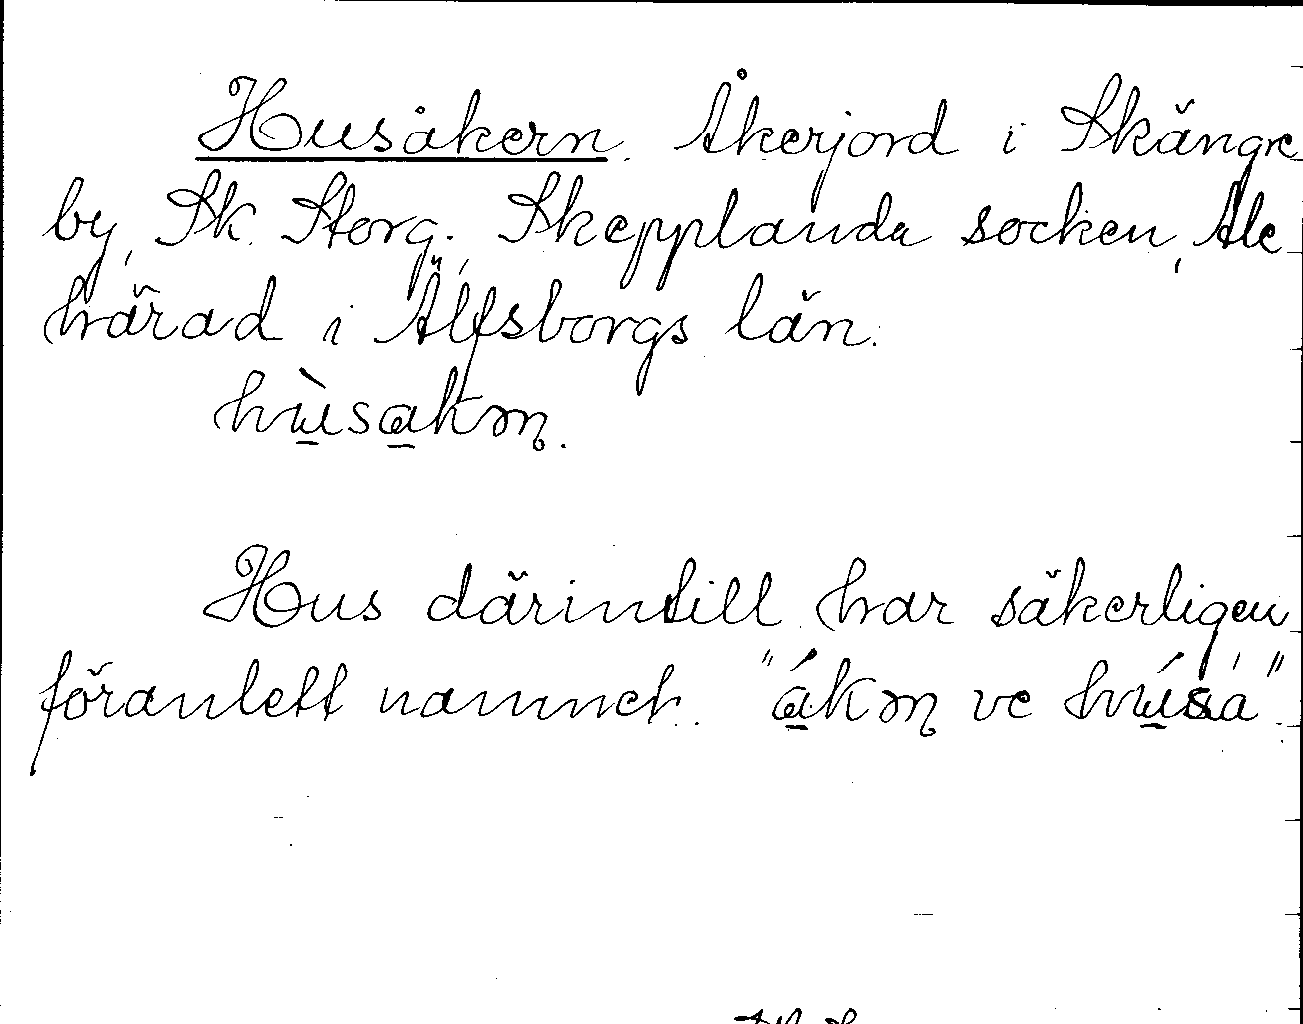 Husåkern. Åkerjord i Skängre
by, Sk. Storg. Skepplanda socken, Ale
härad i Älfsborgs län.
hùsakrn.
Hus därintill har säkerligen
föranlett namnet. "ákrn ve húsá".